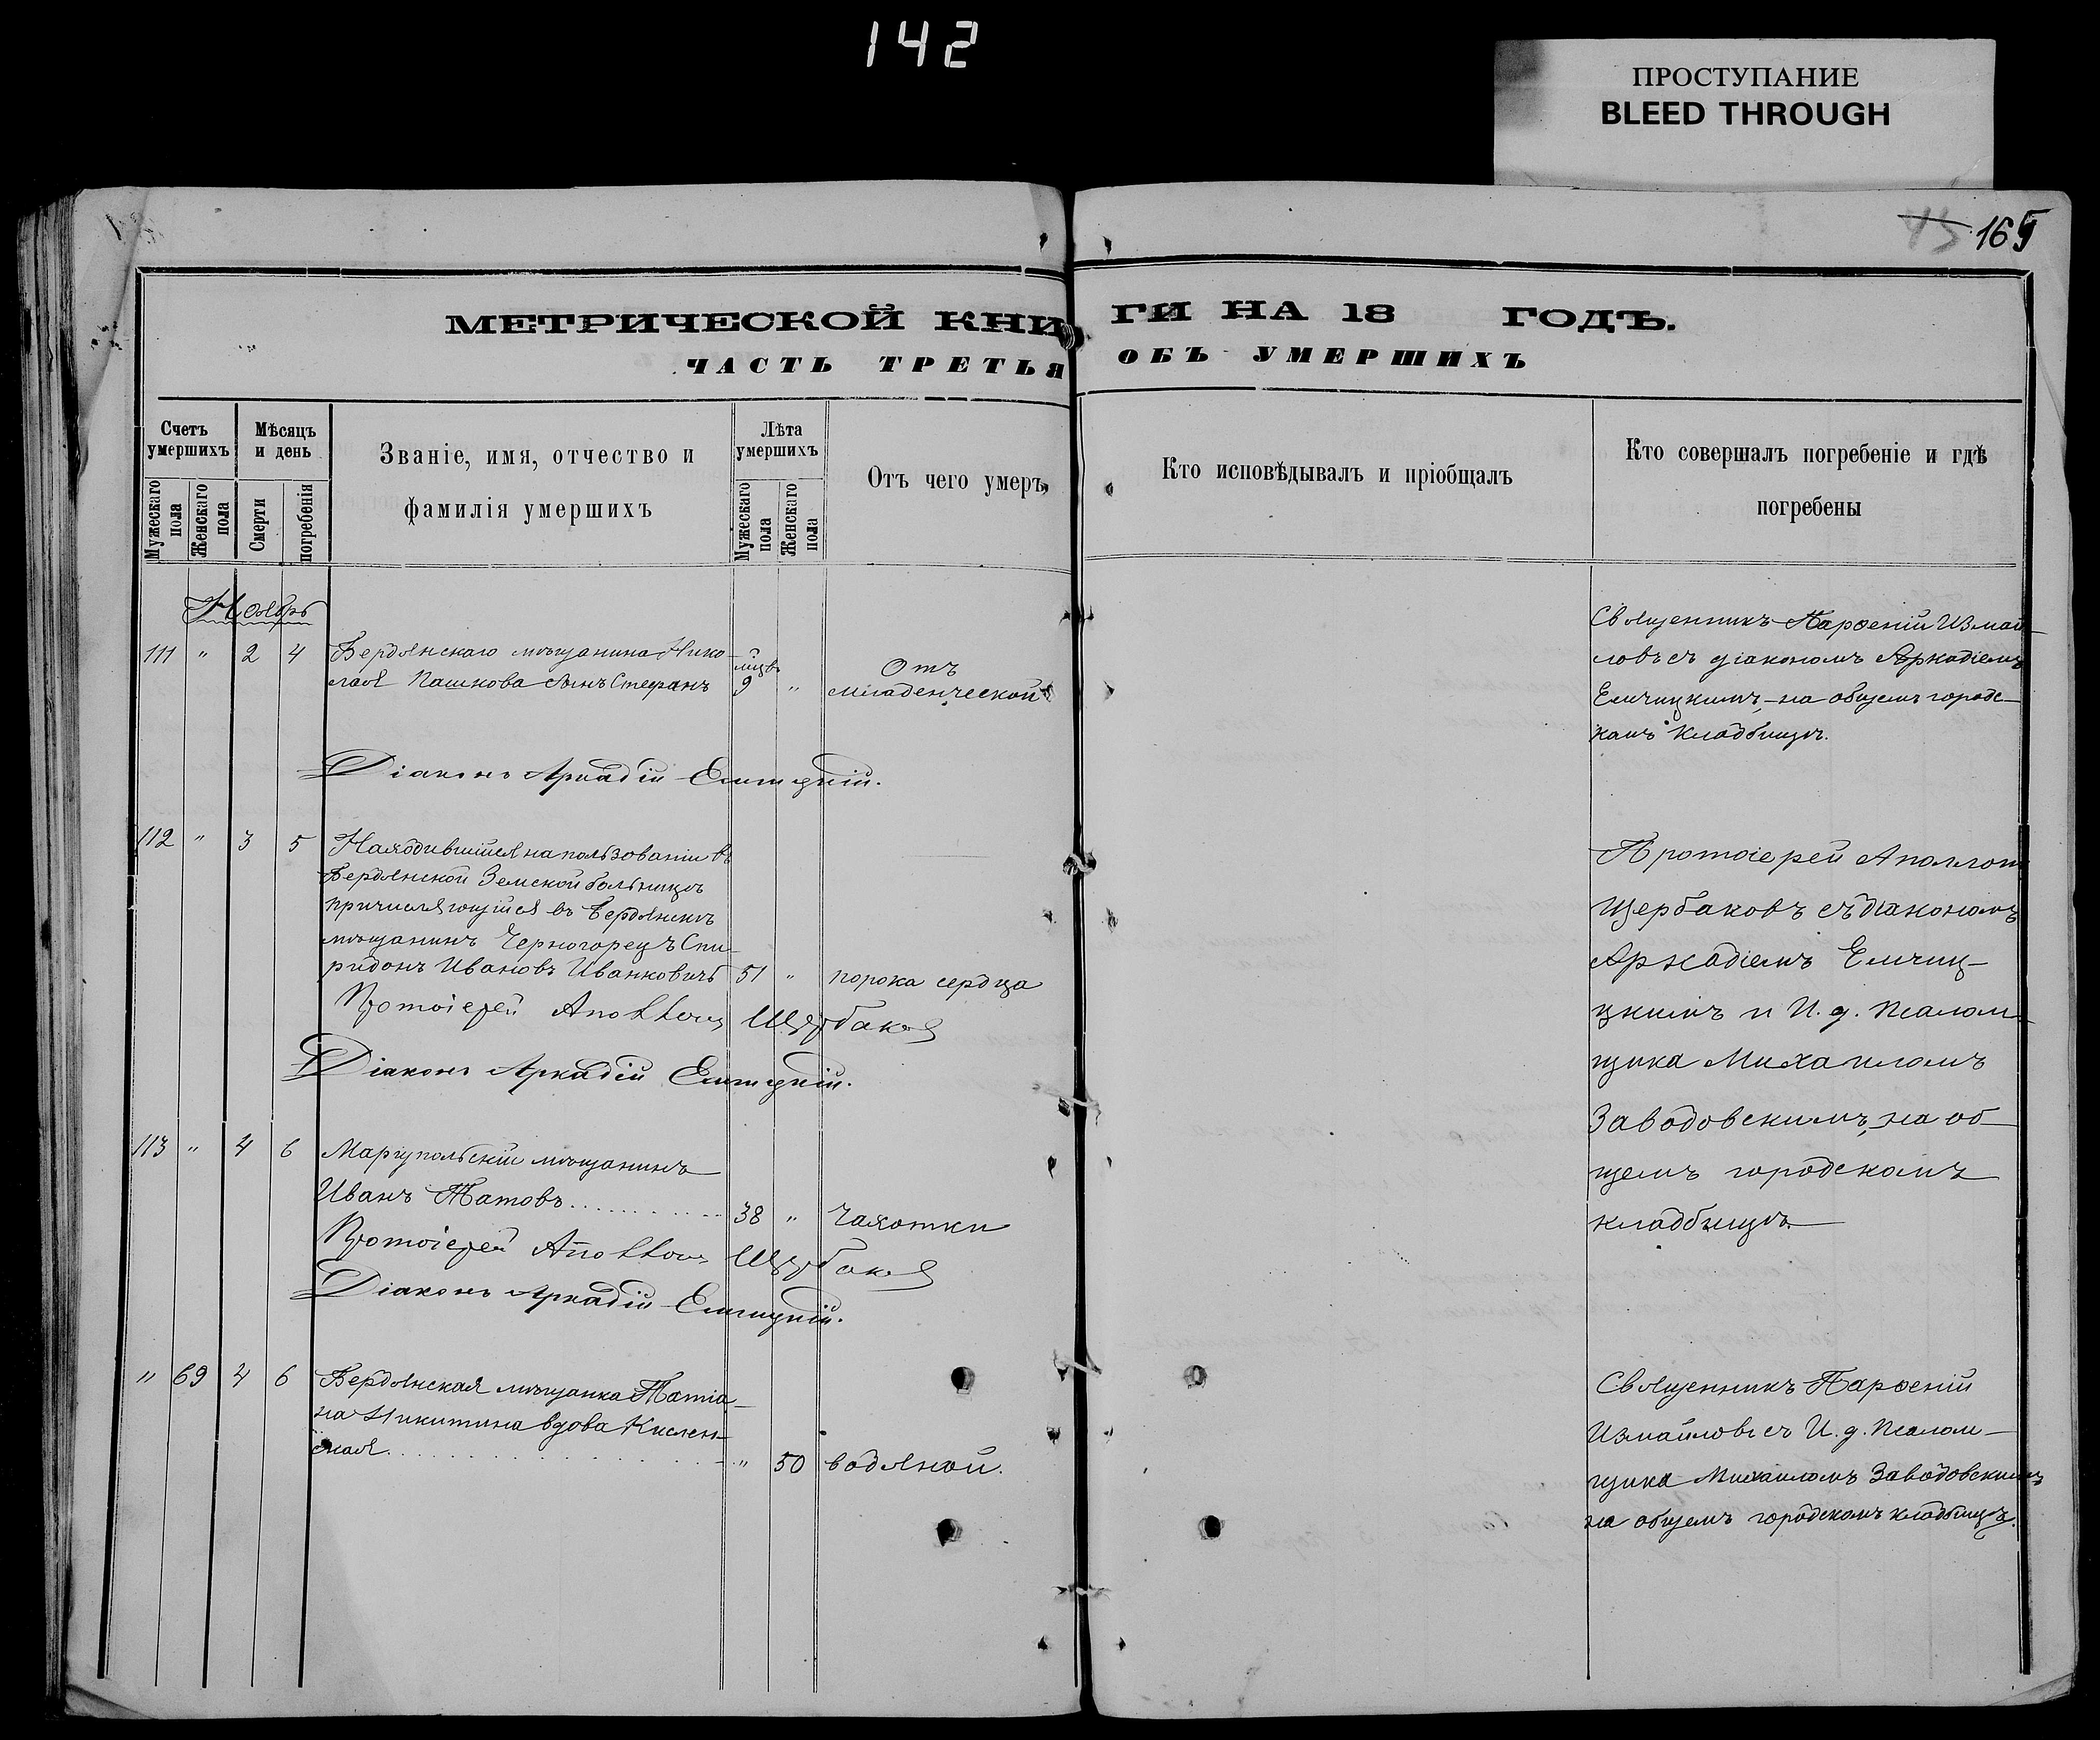 142
ПРОСТУПАНИЕ
BLEED THROUGH
45 165
МЕТРИЧЕСКОЙ КНИГИ НА 18 ГОДЪ.
ЧАСТЬ ТРЕТЬЯ ОБЪ УМЕРШИХЪ
Счетъ умершихъ
Мужескаго пола
Женскаго пола
Мѣсяцъ и день
Смерти
погребенія
Званіе, имя, отчество и
фамилія умершихъ
Лѣта умершихъ
Мужескаго пола
Женскаго пола
Отъ чего умеръ
Кто исповѣдывалъ и пріобщалъ
Кто совершалъ погребеніе и гдѣ
погребены
Ноябрь
111 " 2 4 Бердянскаго мѣщанина Нико-
лая Пашкова сынъ Стефанъ
мцв
9 "
Отъ
младенческой
Священникъ Парѳеній Измай-
ловъ съ діакономъ Аркадіемъ
Емчицкимъ, на общемъ городс-
комъ кладбищѣ.
Діаконъ Аркадій Емчицкій.
112 " 3 5 Находившійся на пользованіи въ
Бердянской Земской больницѣ
причисляющійся въ Бердянскѣ
мѣщанинъ Черногорецъ Спи-
ридонъ Ивановъ Иванковичъ 51 " порока сердца
Протоіерей Аполлонъ Щербаковъ
Діаконъ Аркадій Емчицкій.
Протоіерей Аполлонъ
Щербаковъ съ діакономъ
Аркадіемъ Емчиц-
цкимъ и И. д. псалом-
щика Михаиломъ
Заводовскимъ, на об-
щемъ городскомъ
кладбищѣ
113 " 4 6 Маріупольскій мѣщанинъ
Иванъ Татовъ 38 " чахотки
Протоіерей Аполлонъ Щербаковъ
Діаконъ Аркадій Емчицкій.
" 69 4 6 Бердянская мѣщанка Татіа-
на Никитина вдова Кислен-
ская " 50 водяной.
Священникъ Парѳеній
Измайловъ съ И. д. псалом-
щика Михаиломъ Заводовскимъ
на общемъ городскомъ кладбищѣ.